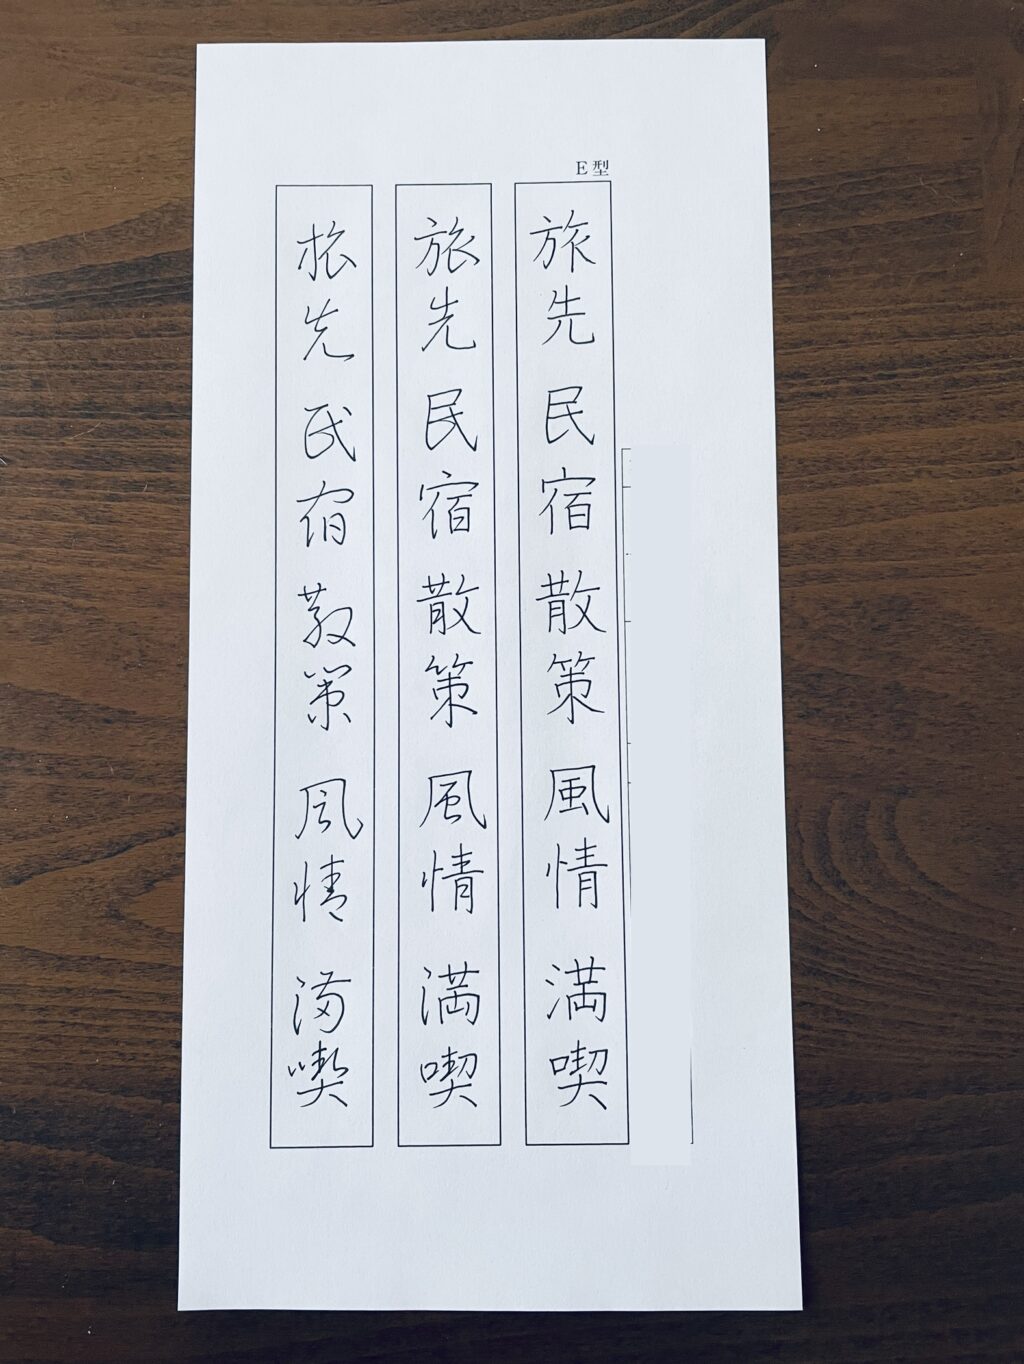 E型
旅先民宿散策風情満喫
旅先民宿散策風情満喫
旅先民宿散策風情満喫